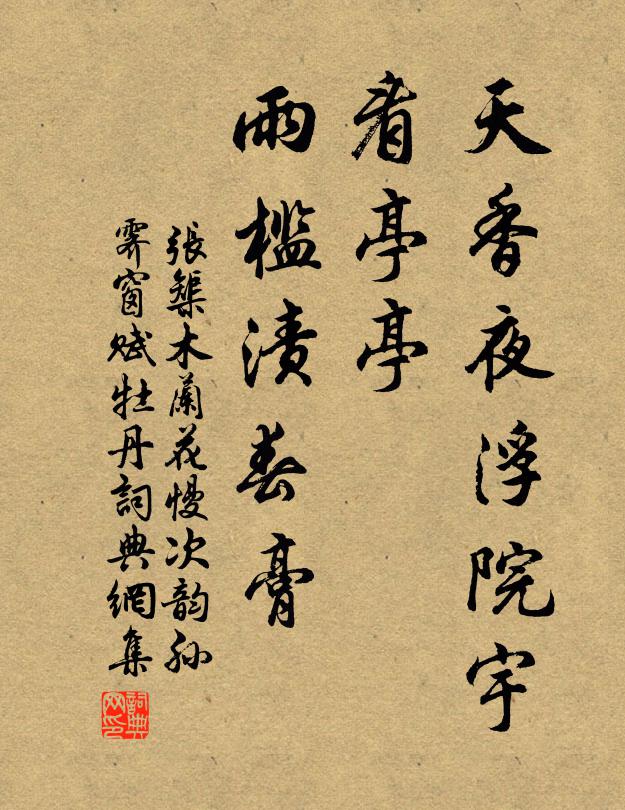 天香夜浮院宇
看亭亭
雨檻漬春膏
張榘木蘭花慢次韵孙
霽窗赋牡丹詞典網集
詞典网印